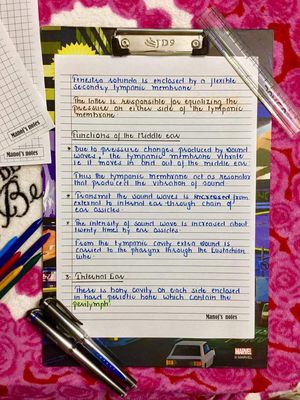 JD9
Fenestra rotunda is enclosed by a flexible
secondary tympanic membrane
The latter is responsible for equalizing the
pressure on either side of the tympanic
membrane
Functions of the Middle ear
* Due to pressure changes produced by sound
waves, the tympanic membrane vibrate
i.e it moves in and out of the middle ear
Thus the tympanic membrane act as resonator
that produced the vibration of sound.
* Transmit the sound waves is increased from
external to internal ear through chain of
ear ossicles.
* The intensity of sound wave is increased about
twenty times by ear ossicles.
From the tympanic cavity extra sound is
carried to the pharynx through the Eustachian
tube
3. Internal Ear
There is bony cavity on each side enclosed
in hard periotic bone which contain the
perilymph
Manoj's notes
Manoj's notes
Manoj's notes
Be
MARVEL
© MARVEL